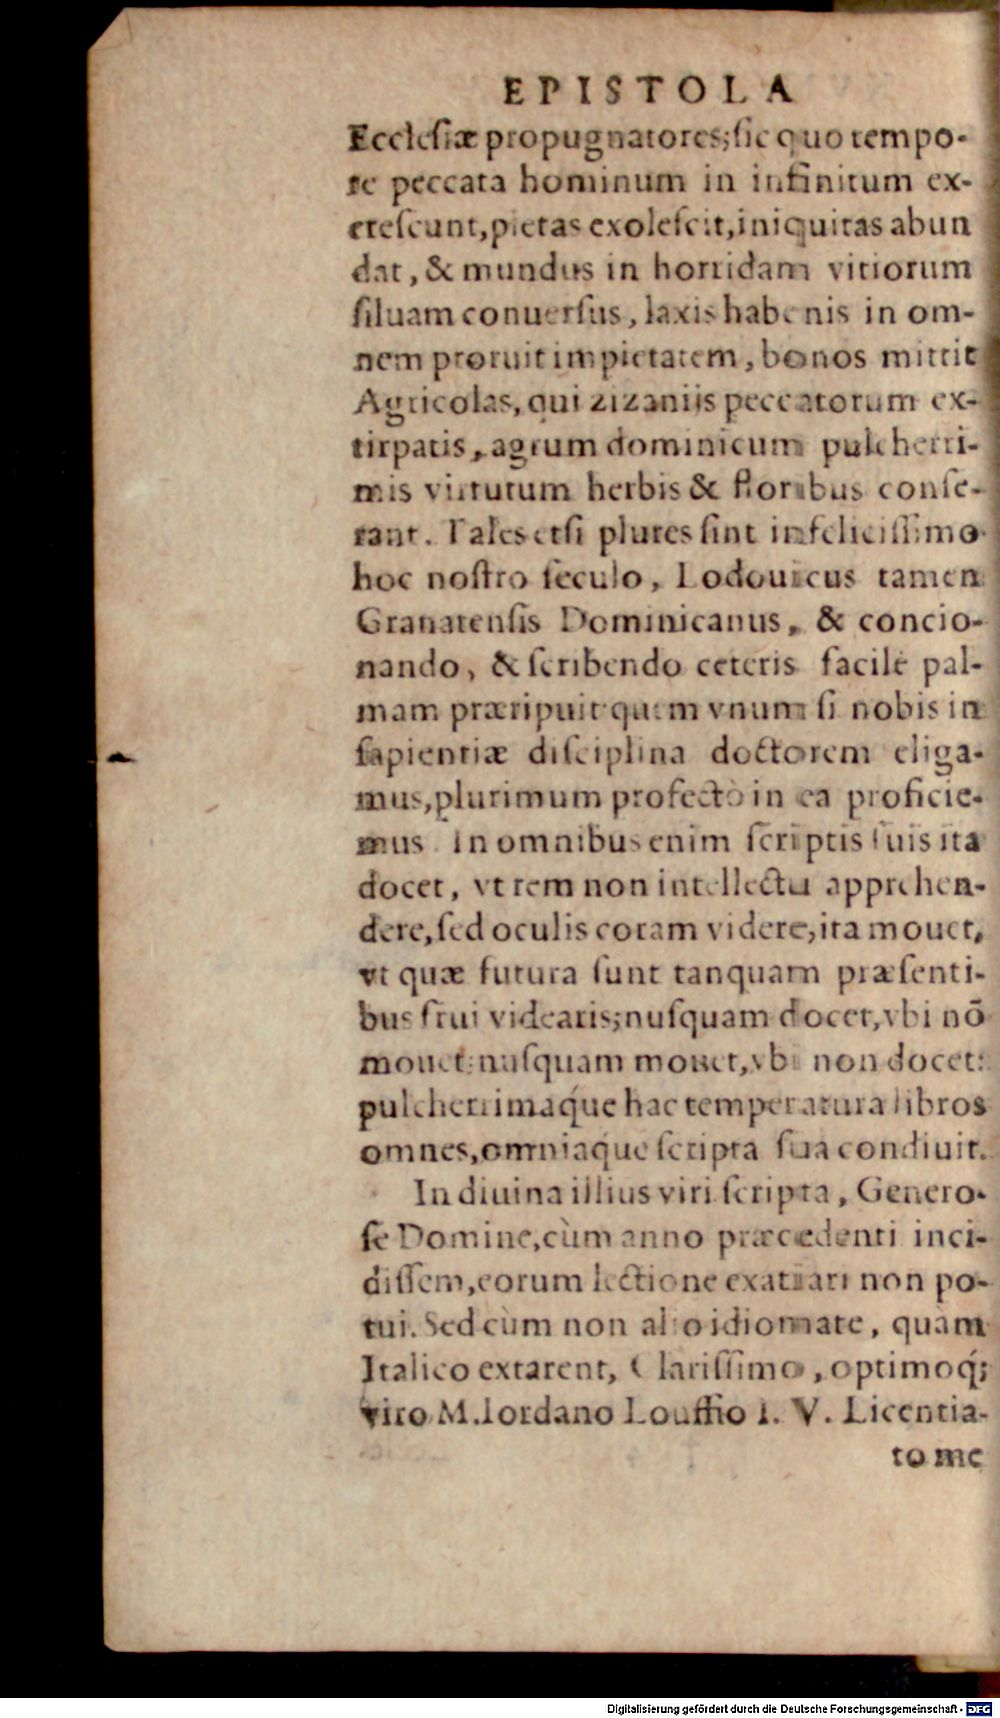 EPISTOLA
Ecclesiæ propugnatores; sic quo tempo-
re peccata hominum in infinitum ex-
crescunt, pietas exolescit, iniquitas abun
dat, & mundus in horridam vitiorum
siluam conuersus, laxis habenis in om-
nem proruit impietatem, bonos mittit
Agricolas, qui zizaniis peccatorum ex-
tirpatis, agrum dominicum pulcherri-
mis virtutum herbis & floribus conse-
rant. Tales etsi plures sint infelicissimo
hoc nostro seculo, Lodouicus tamen
Granatensis Dominicanus, & concio-
nando, & scribendo ceteris facilè pal-
mam præripuit quem vnum si nobis in
sapientiæ disciplina doctorem eliga-
mus, plurimum profectò in ea proficie-
mus in omnibus enim scriptis suis ita
docet, vt rem non intellectu apprehen-
dere, sed oculis coram videre, ita mouet,
vt quæ futura sunt tanquam præsenti-
bus frui videaris; nusquam docet, vbi nō
mouet: nusquam mouet, vbi non docet:
pulcherrimaq́ue hac temperatura libros
omnes, omniaq́ue scripta sua condiuit.
In diuina illius viri scripta, Genero-
se Domine, cùm anno præcedenti inci-
dissem, eorum lectione exatiari non po-
tui. Sed cùm non alio idiomate, quàm
Italico extarent, Clarissimo, optimoq́;
viro M. Iordano Louffio I. V. Licentia-
to me
Digitalisierung gefördert durch die Deutsche Forschungsgemeinschaft - DFG